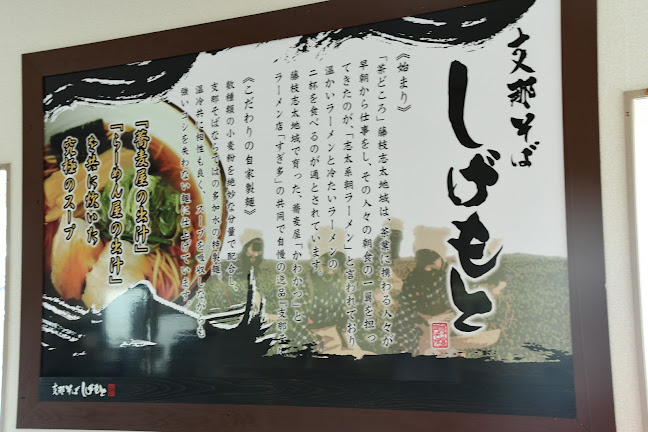 支那そば
しげもと
《始まり》
「茶どころ」藤枝志太地域は、茶葉に携わる人々が
早朝から仕事をし、その人々の朝食の一翼を担っ
てきたのが、「志太系朝ラーメン」と言われており
温かいラーメンと冷たいラーメンの
二杯を食べるのが通とされています。
藤枝志太地域で育った、蕎麦屋「かわかつ」と
ラーメン店「すぎ多」の共同で自慢の逸品「支那そ
《こだわりの自家製麺》
数種類の小麦粉を絶妙な分量で配合し、
支那そばならではの多加水の特製麺
温冷共に相性も良く、スープを吸収しながらも
強いコシを失わない麺に仕上げています。
『蕎麦屋の出汁』
『らーめん屋の出汁』
を共に炊いた
究極のスープ
支那そば しげもと